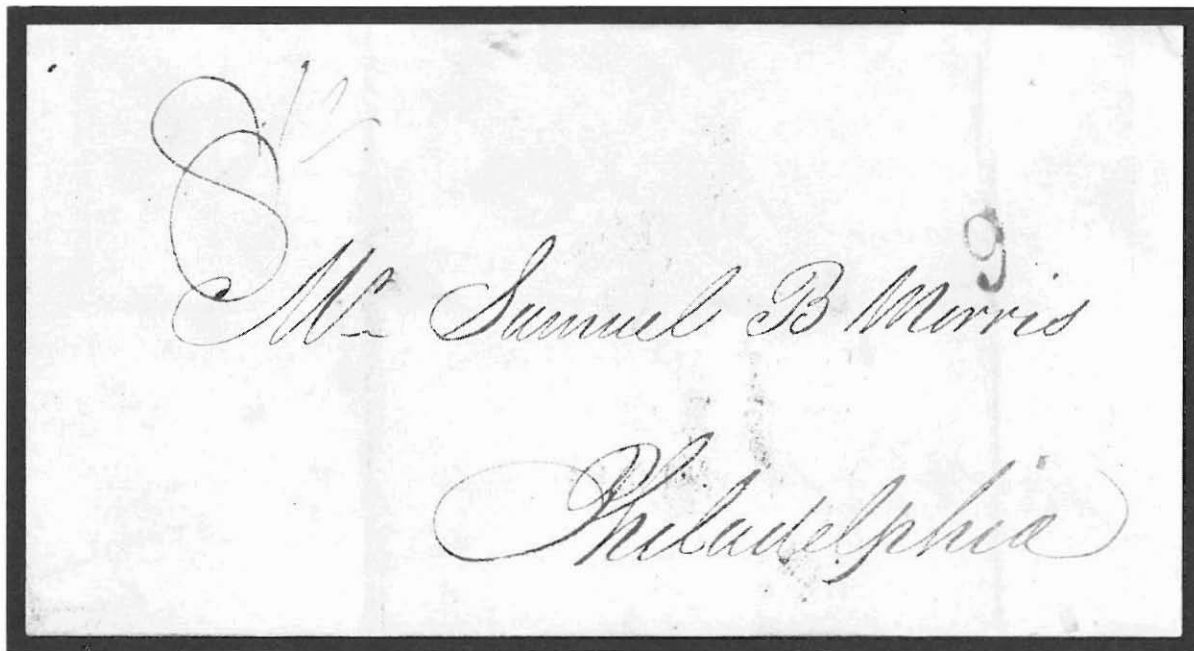 9
Mr Samuel B Morris
Philadelphia